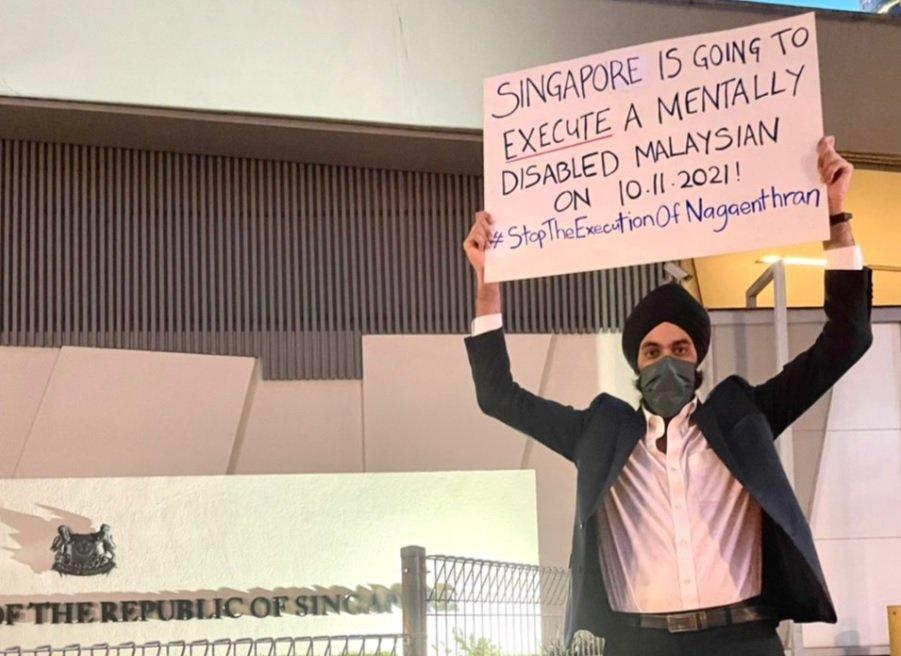 SINGAPORE IS GOING TO
EXECUTE A MENTALLY
DISABLED MALAYSIAN
ON 10.11.2021!
#StopTheExecutionOfNagaenthran
OF THE REPUBLIC OF